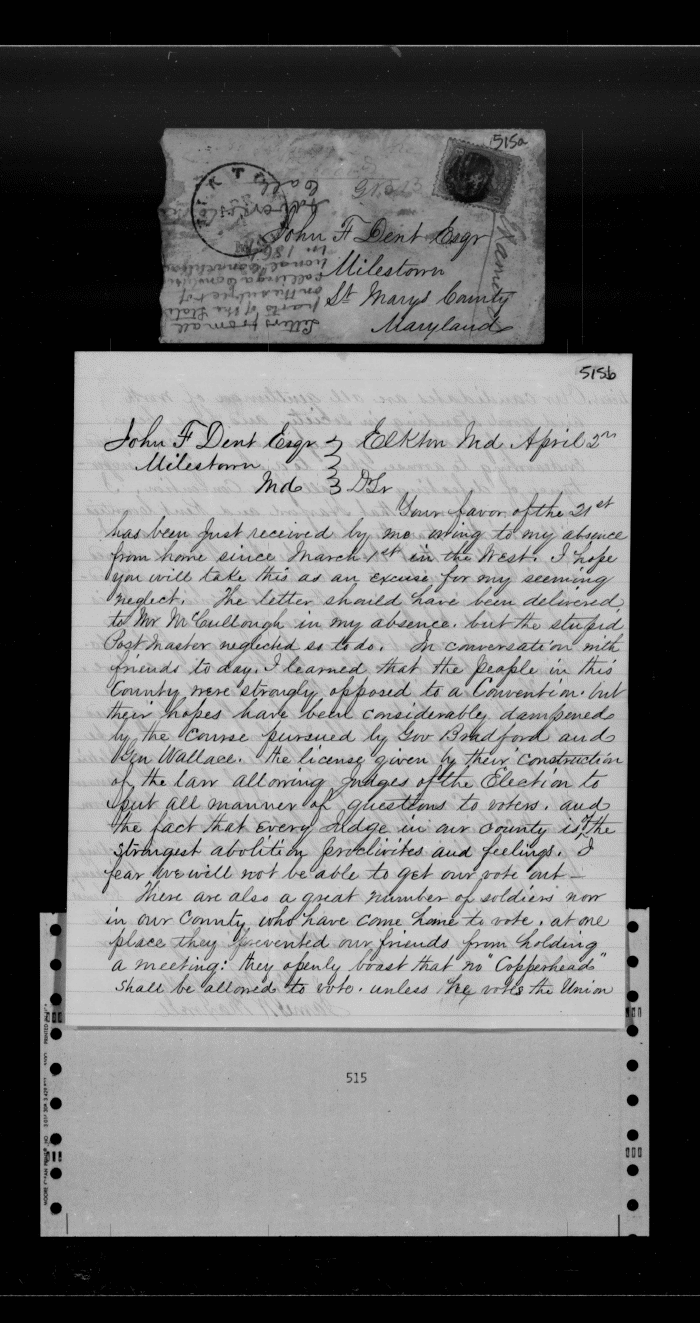 515a
ELKTON
John F Dent Esqr
Milestown
St Marys County
Maryland
Letters from all
parts of the State
on the subject of
calling a Conven
tional Convention
in 1864
515b
John F Dent Esqr } Elkton Md April 2nd
Milestown
Md } D Sr
Your favor of the 21st
has been just received by me owing to my absence
from home since March 1st in the West. I hope
you will take this as an excuse for my seeming
neglect. The letter should have been delivered
to Mr McCullough in my absence. but the stupid
Post Master neglected so to do. In conversation with
friends to day, I learned that the people in this
County were strongly opposed to a Convention. but
their hopes have been considerably dampened
by the course pursued by Gov Bradford and
Gen Wallace. the license given by their construction
of the law allowing Judges of the Election to
put all manner of questions to voters. and
the fact that every Judge in our county is of the
strongest abolition proclivites and feelings. I
fear we will not be able to get our vote out –
There are also a great number of soldiers now
in our County, who have come home to vote. at one
place they prevented our friends from holding
a meeting: they openly boast that no "Copperhead"
shall be allowed to vote. unless he votes the Union
515